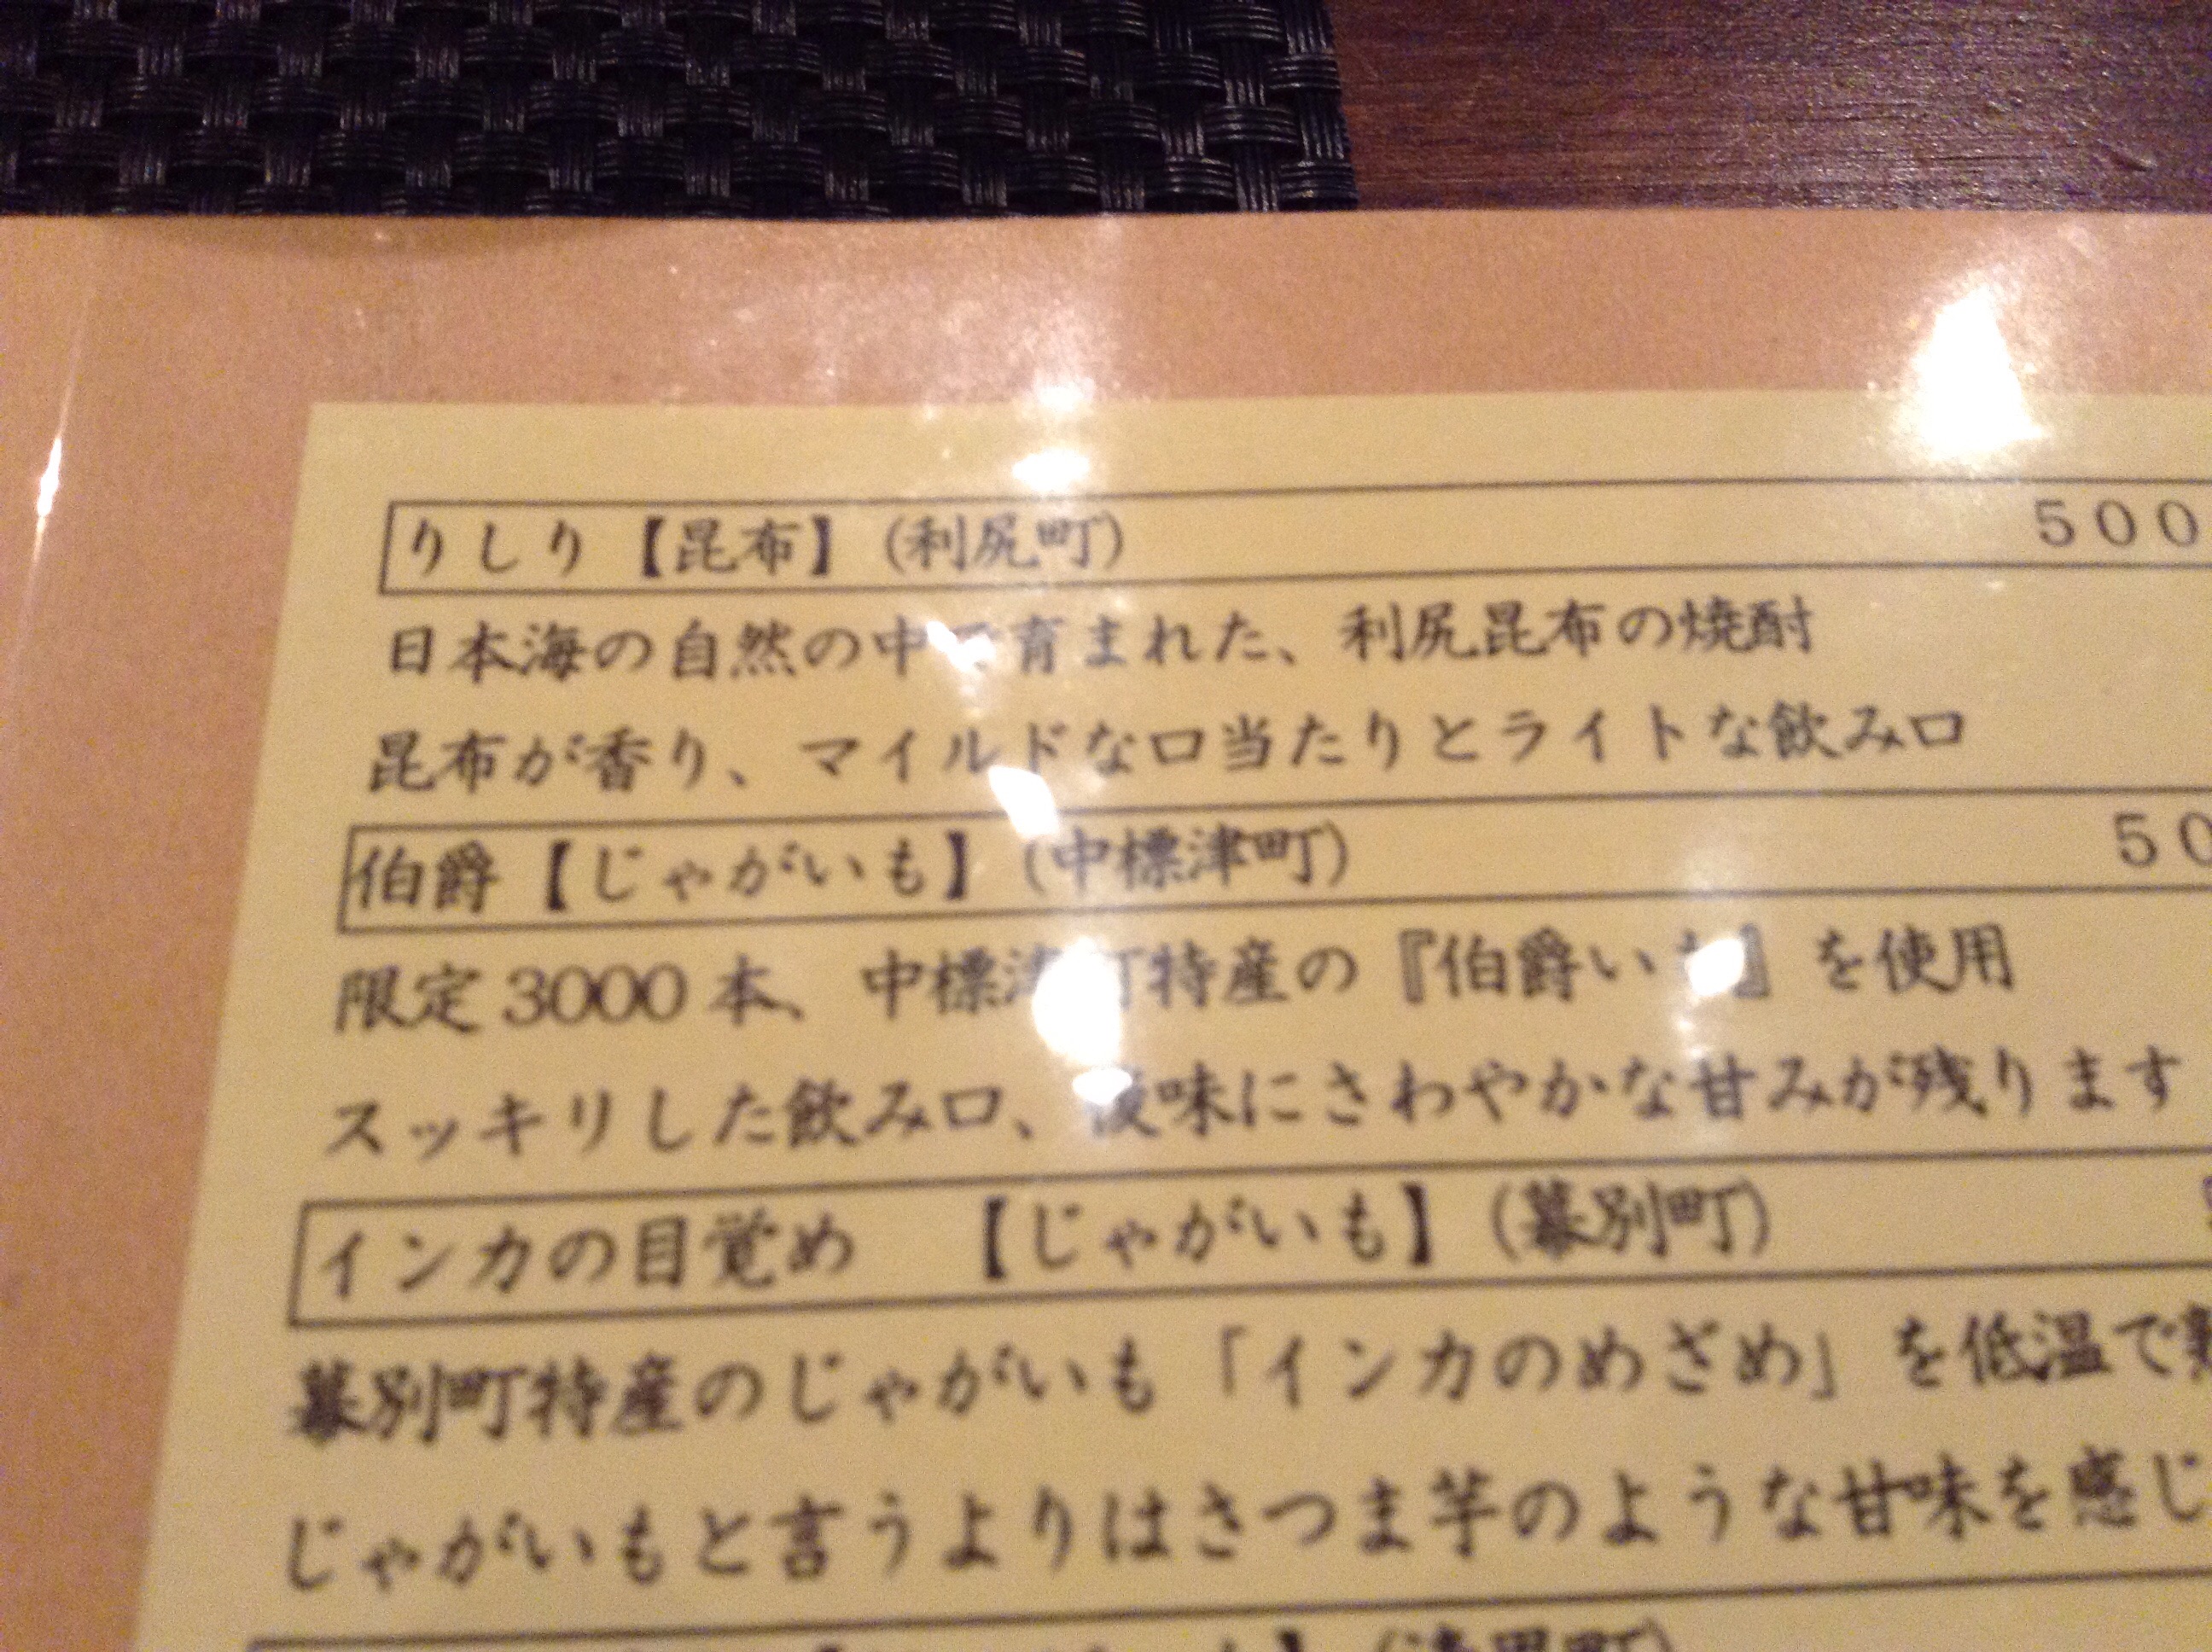 りしり【昆布】(利尻町) 500
日本海の自然の中で育まれた、利尻昆布の焼酎
昆布が香り、マイルドな口当たりとライトな飲み口
伯爵【じゃがいも】(中標津町) 50
限定3000本、中標津町特産の『伯爵いも』を使用
スッキリした飲み口、後味にさわやかな甘みが残ります
インカの目覚め 【じゃがいも】(幕別町)
幕別町特産のじゃがいも「インカのめざめ」を低温で
じゃがいもと言うよりはさつま芋のような甘味を感じ